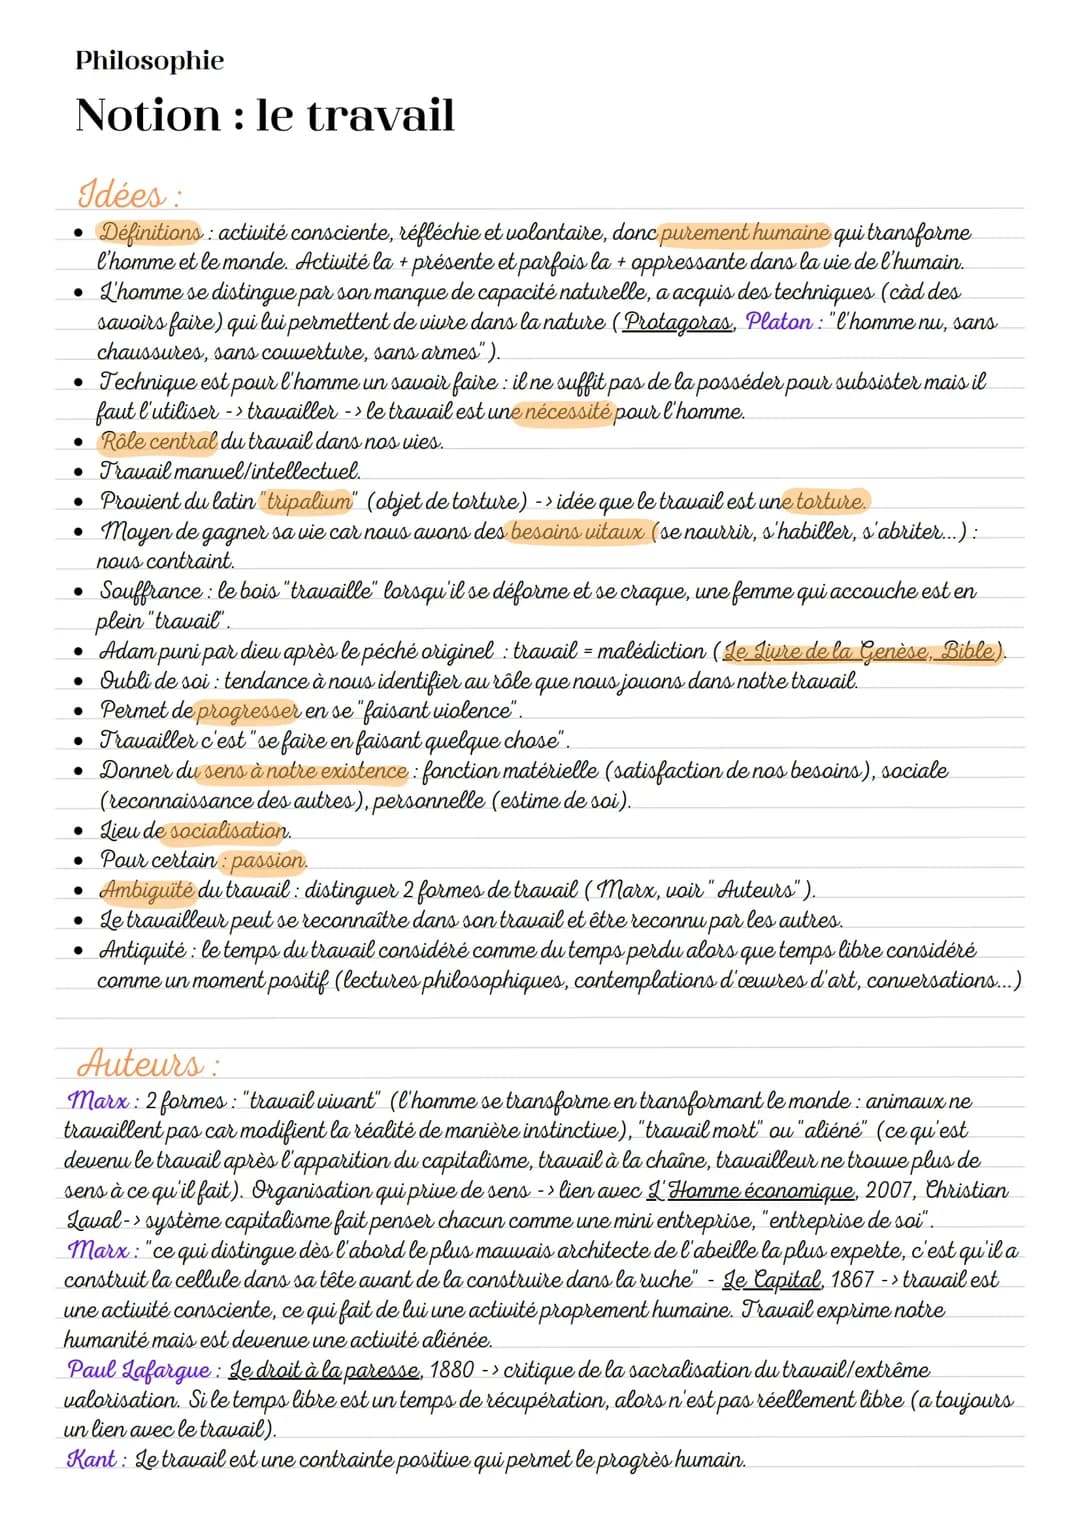 Philosophie
Notion : le travail
Idées :
• Définitions : activité consciente, réfléchie et volontaire, donc purement humaine qui transforme
l'homme et le monde. Activité la + présente et parfois la + oppressante dans la vie de l'humain.
• L'homme se distingue par son manque de capacité naturelle, a acquis des techniques (càd des
savoirs faire) qui lui permettent de vivre dans la nature (Protagoras, Platon : "l'homme nu, sans
chaussures, sans couverture, sans armes").
• Technique est pour l'homme un savoir faire : il ne suffit pas de la posséder pour subsister mais il
faut l'utiliser -> travailler -> le travail est une nécessité pour l'homme.
• Rôle central du travail dans nos vies.
• Travail manuel/intellectuel.
• Provient du latin "tripalium" (objet de torture) -> idée que le travail est une torture.
• Moyen de gagner sa vie car nous avons des besoins vitaux (se nourrir, s'habiller, s'abriter...) :
nous contraint.
• Souffrance : le bois "travaille" lorsqu'il se déforme et se craque, une femme qui accouche est en
plein "travail".
• Adam puni par dieu après le péché originel : travail = malédiction (Le Livre de la Genèse, Bible).
• Oubli de soi : tendance à nous identifier au rôle que nous jouons dans notre travail.
• Permet de progresser en se "faisant violence".
• Travailler c'est "se faire en faisant quelque chose".
• Donner du sens à notre existence : fonction matérielle (satisfaction de nos besoins), sociale
(reconnaissance des autres), personnelle (estime de soi).
• Lieu de socialisation.
• Pour certain : passion.
• Ambiguïté du travail : distinguer 2 formes de travail (Marx, voir "Auteurs").
• Le travailleur peut se reconnaître dans son travail et être reconnu par les autres.
• Antiquité : le temps du travail considéré comme du temps perdu alors que temps libre considéré
comme un moment positif (lectures philosophiques, contemplations d'œuvres d'art, conversations...)
Auteurs :
Marx : 2 formes : "travail vivant" (l'homme se transforme en transformant le monde : animaux ne
travaillent pas car modifient la réalité de manière instinctive), "travail mort" ou "aliéné" (ce qu'est
devenu le travail après l'apparition du capitalisme, travail à la chaîne, travailleur ne trouve plus de
sens à ce qu'il fait). Organisation qui prive de sens -> lien avec L'Homme économique, 2007, Christian
Laval -> système capitalisme fait penser chacun comme une mini entreprise, "entreprise de soi".
Marx : "ce qui distingue dès l'abord le plus mauvais architecte de l'abeille la plus experte, c'est qu'il a
construit la cellule dans sa tête avant de la construire dans la ruche" - Le Capital, 1867 -> travail est
une activité consciente, ce qui fait de lui une activité proprement humaine. Travail exprime notre
humanité mais est devenue une activité aliénée.
Paul Lafargue : Le droit à la paresse, 1880 -> critique de la sacralisation du travail/extrême
valorisation. Si le temps libre est un temps de récupération, alors n'est pas réellement libre (a toujours
un lien avec le travail).
Kant : Le travail est une contrainte positive qui permet le progrès humain.